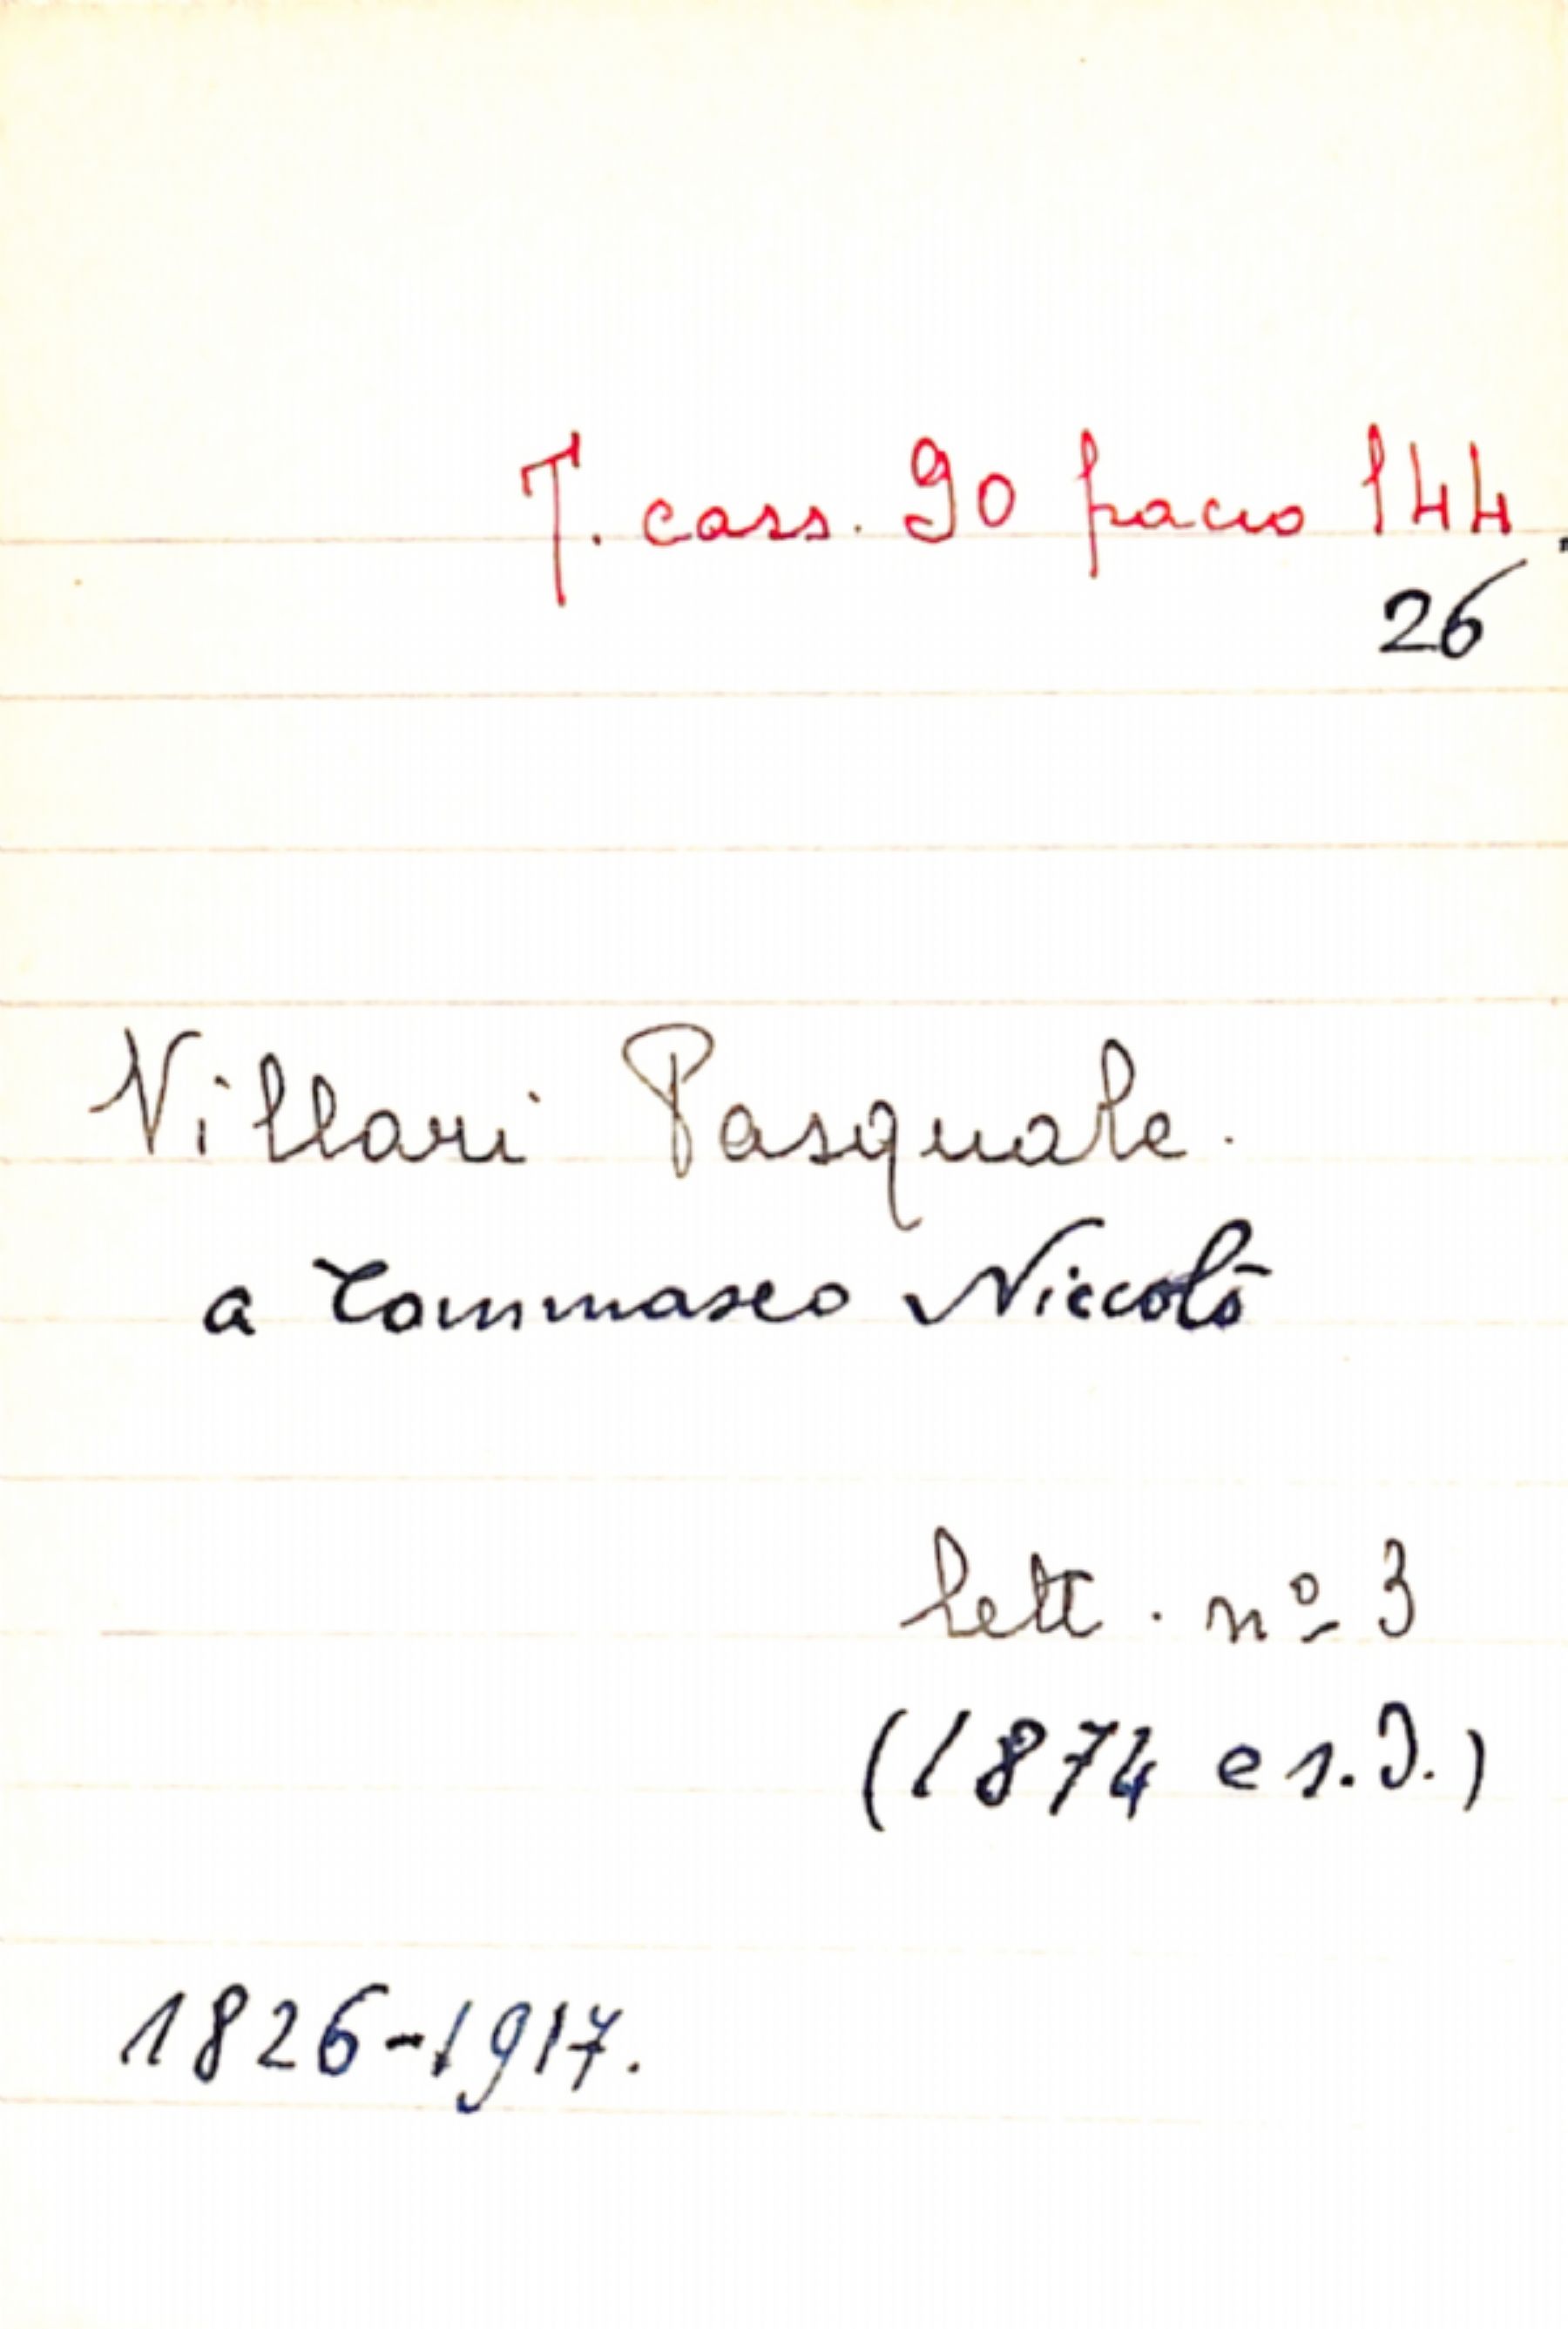 T. cass. 90 pacco 144.
26
Villari Pasquale.
a Tommaseo Niccolò
lett. nº 3
(1874 e s.d.)
1826-1917.